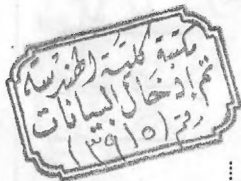 مكتبة كلية الهندسة
تم إدخال البيانات
رقم (١٣٩١٥)